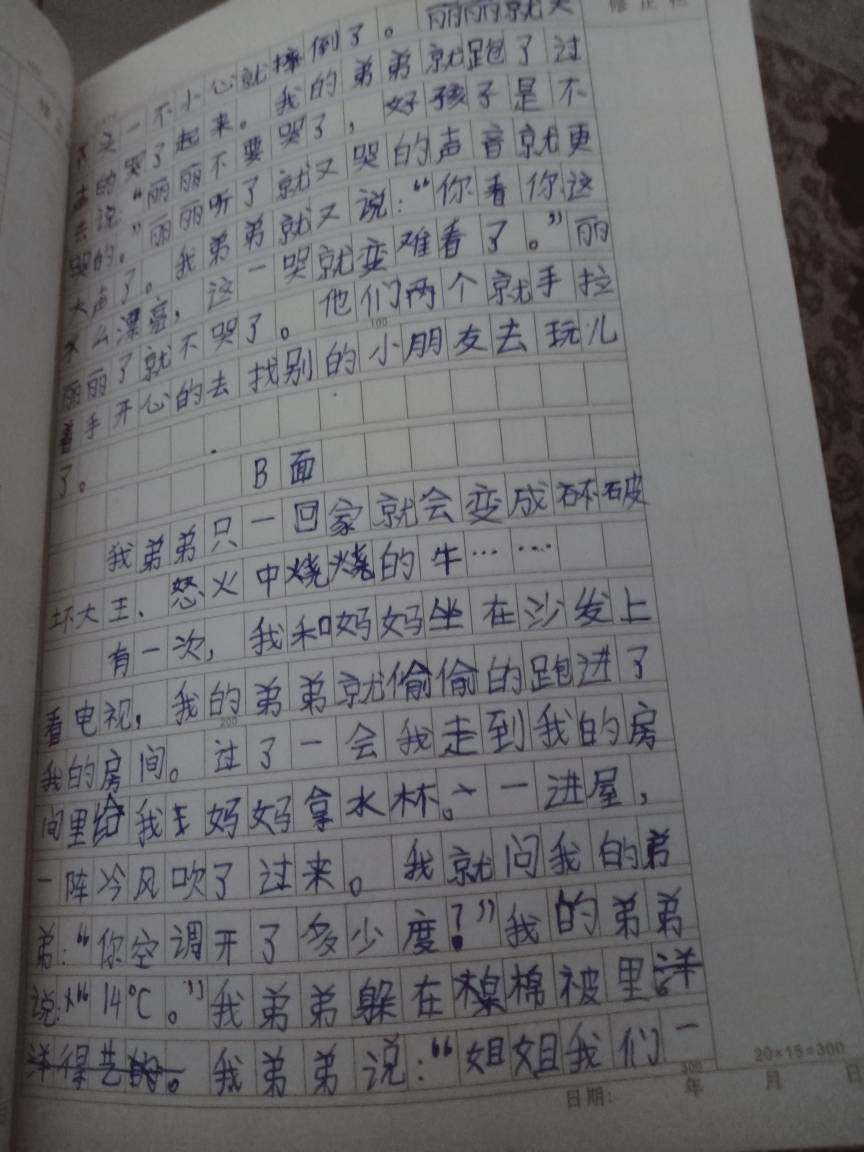 不交一不小心就摔倒了。丽丽就大 修正栏
声的哭了起来。我的弟弟就跑了过
去说:“丽丽不要哭了,好孩子是不
哭的。”丽丽听了就又哭的声音就更
大声了。我弟弟就又说:“你看你这
么漂亮,这一哭就变难看了。”丽
丽丽了就不哭了。他们两个就手拉
100
着手开心的去找别的小朋友去玩儿
了。
B面
我弟弟只一回家就会变成破
坏大王、怒火中烧烧的牛……
有一次,我和妈妈坐在沙发上
看电视,我的弟弟就偷偷的跑进了
200
我的房间。过了一会我走到我的房
间里给我妈妈拿水杯。一进屋,
一阵冷风吹了过来。我就问我的弟
弟:“你空调开了多少度?!”我的弟弟
说:“14℃。”我弟弟躲在棉被里洋
洋得。我弟弟说:“姐姐我们一
300
20×15=300
日期: 年 月 日